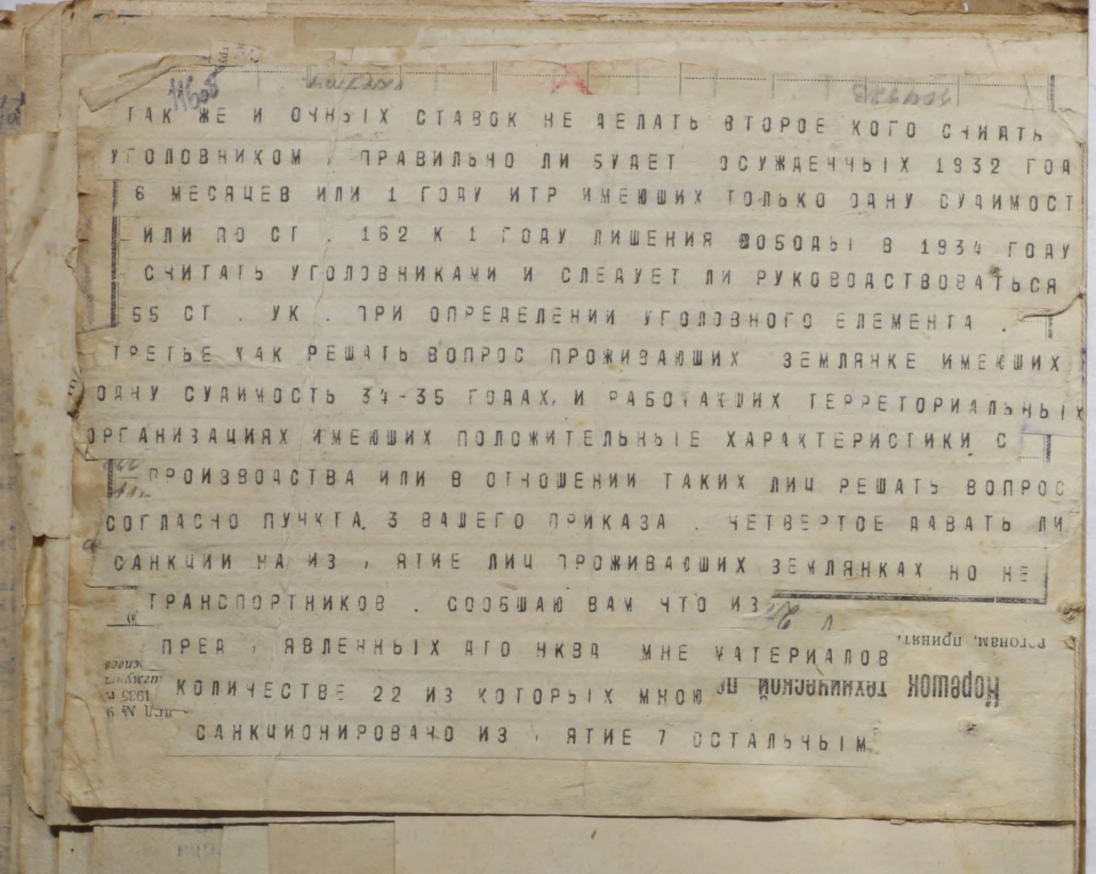 11605
ТАК ЖЕ И ОЧНЫХ СТАВОК НЕ ДЕЛАТЬ ВТОРОЕ КОГО СЧИАТЬ
УГОЛОВНИКОМ , ПРАВИЛЬНО ЛИ БУДЕТ ОСУЖДЕННЫХ 1932 ГОД
6 МЕСЯЦЕВ ИЛИ 1 ГОДУ ИТР ИМЕЮЩИХ ТОЛЬКО ОДНУ СУДИМОСТ
ИЛИ ПО СТ . 162 К 1 ГОДУ ЛИШЕНИЯ ВОБОДЫ В 1934 ГОДУ
СЧИТАТЬ УГОЛОВНИКАМИ И СЛЕДУЕТ ЛИ РУКОВОДСТВОВАТЬСЯ
55 СТ . УК . ПРИ ОПРЕДЕЛЕНИИ УГОЛОВНОГО ЕЛЕМЕНТА .
ТРЕТЬЕ КАК РЕШАТЬ ВОПРОС ПРОЖИВАЮЩИХ ЗЕМЛЯНКЕ ИМЕЮЩИХ
ОДНУ СУДИМОСТЬ 34-35 ГОДАХ, И РАБОТАЮЩИХ ТЕРРЕТОРИАЛЬНЫХ
ОРГАНИЗАЦИЯХ ИМЕЮЩИХ ПОЛОЖИТЕЛЬНЫЕ ХАРАКТЕРИСТИКИ С
ПРОИЗВОДСТВА ИЛИ В ОТНОШЕНИИ ТАКИХ ЛИЦ РЕШАТЬ ВОПРОС
СОГЛАСНО ПУНКТА 3 ВАШЕГО ПРИКАЗА . ЧЕТВЕРТОЕ ДАВАТЬ ЛИ
САНКЦИИ НА ИЗ , ЯТИЕ ЛИЦ ПРОЖИВАЮЩИХ ЗЕМЛЯНКАХ НО НЕ
ТРАНСПОРТНИКОВ . СООБШАЮ ВАМ ЧТО ИЗ
ПРЕД , ЯВЛЕННЫХ ДТО НКВД МНЕ МАТЕРИАЛОВ
КОЛИЧЕСТВЕ 22 ИЗ КОТОРЫХ МНОЮ
САНКЦИОНИРОВАНО ИЗ , ЯТИЕ 7 ОСТАЛЬНЫМ
Корешок технической
1935 г.